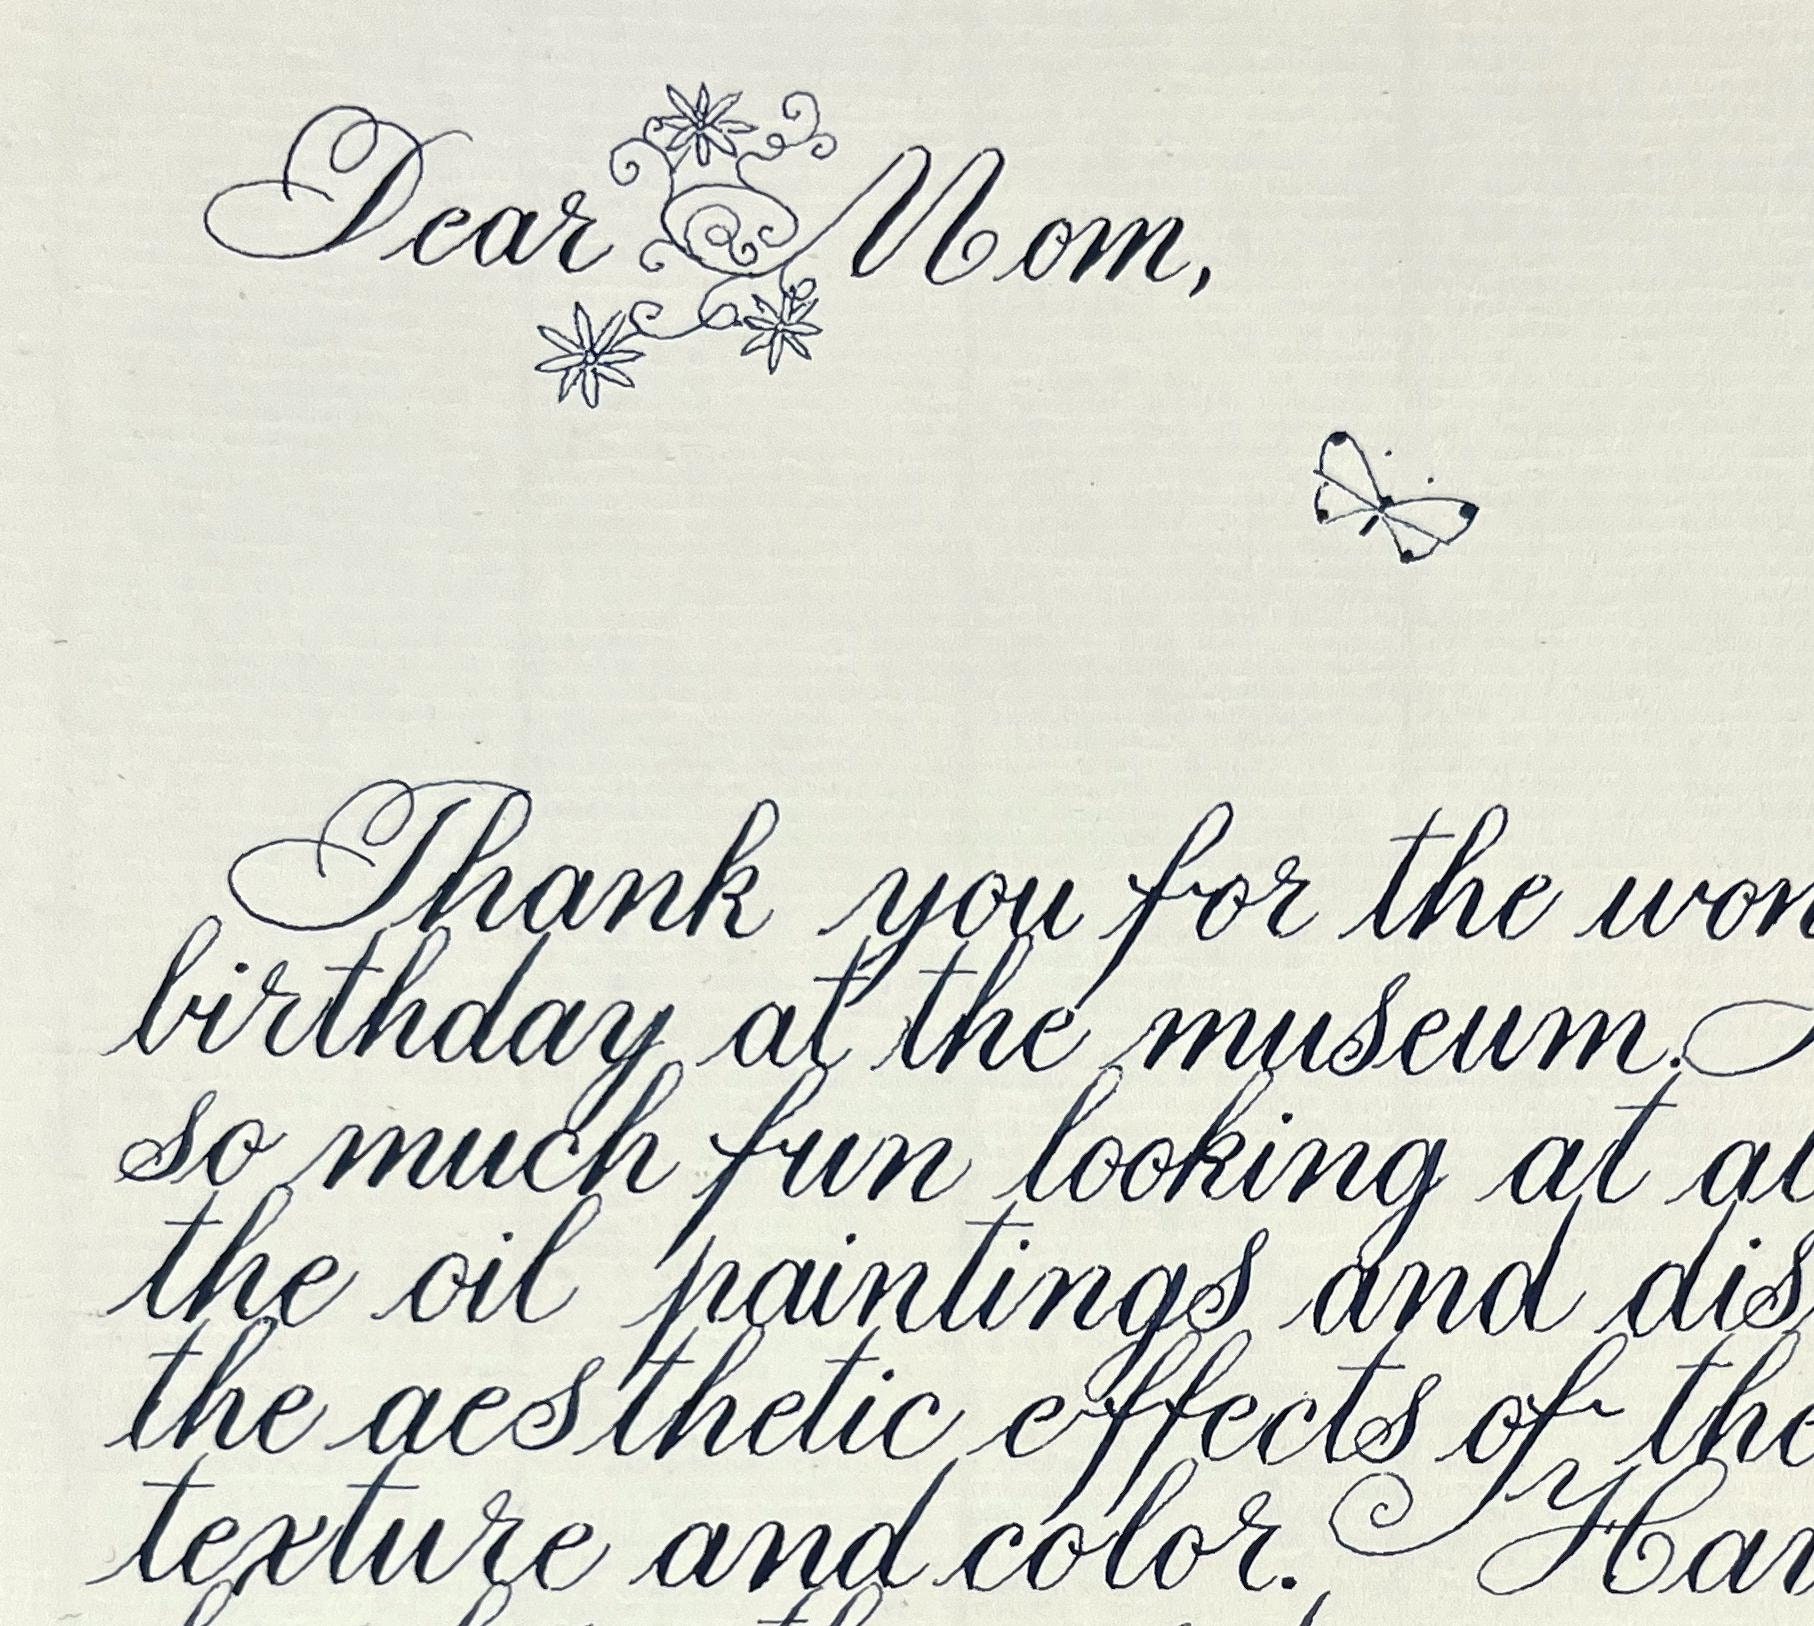 Dear Mom,
Thank you for the won
birthday at the museum.
so much fun looking at al
the oil paintings and dis
the aesthetic effects of the
texture and color. Har